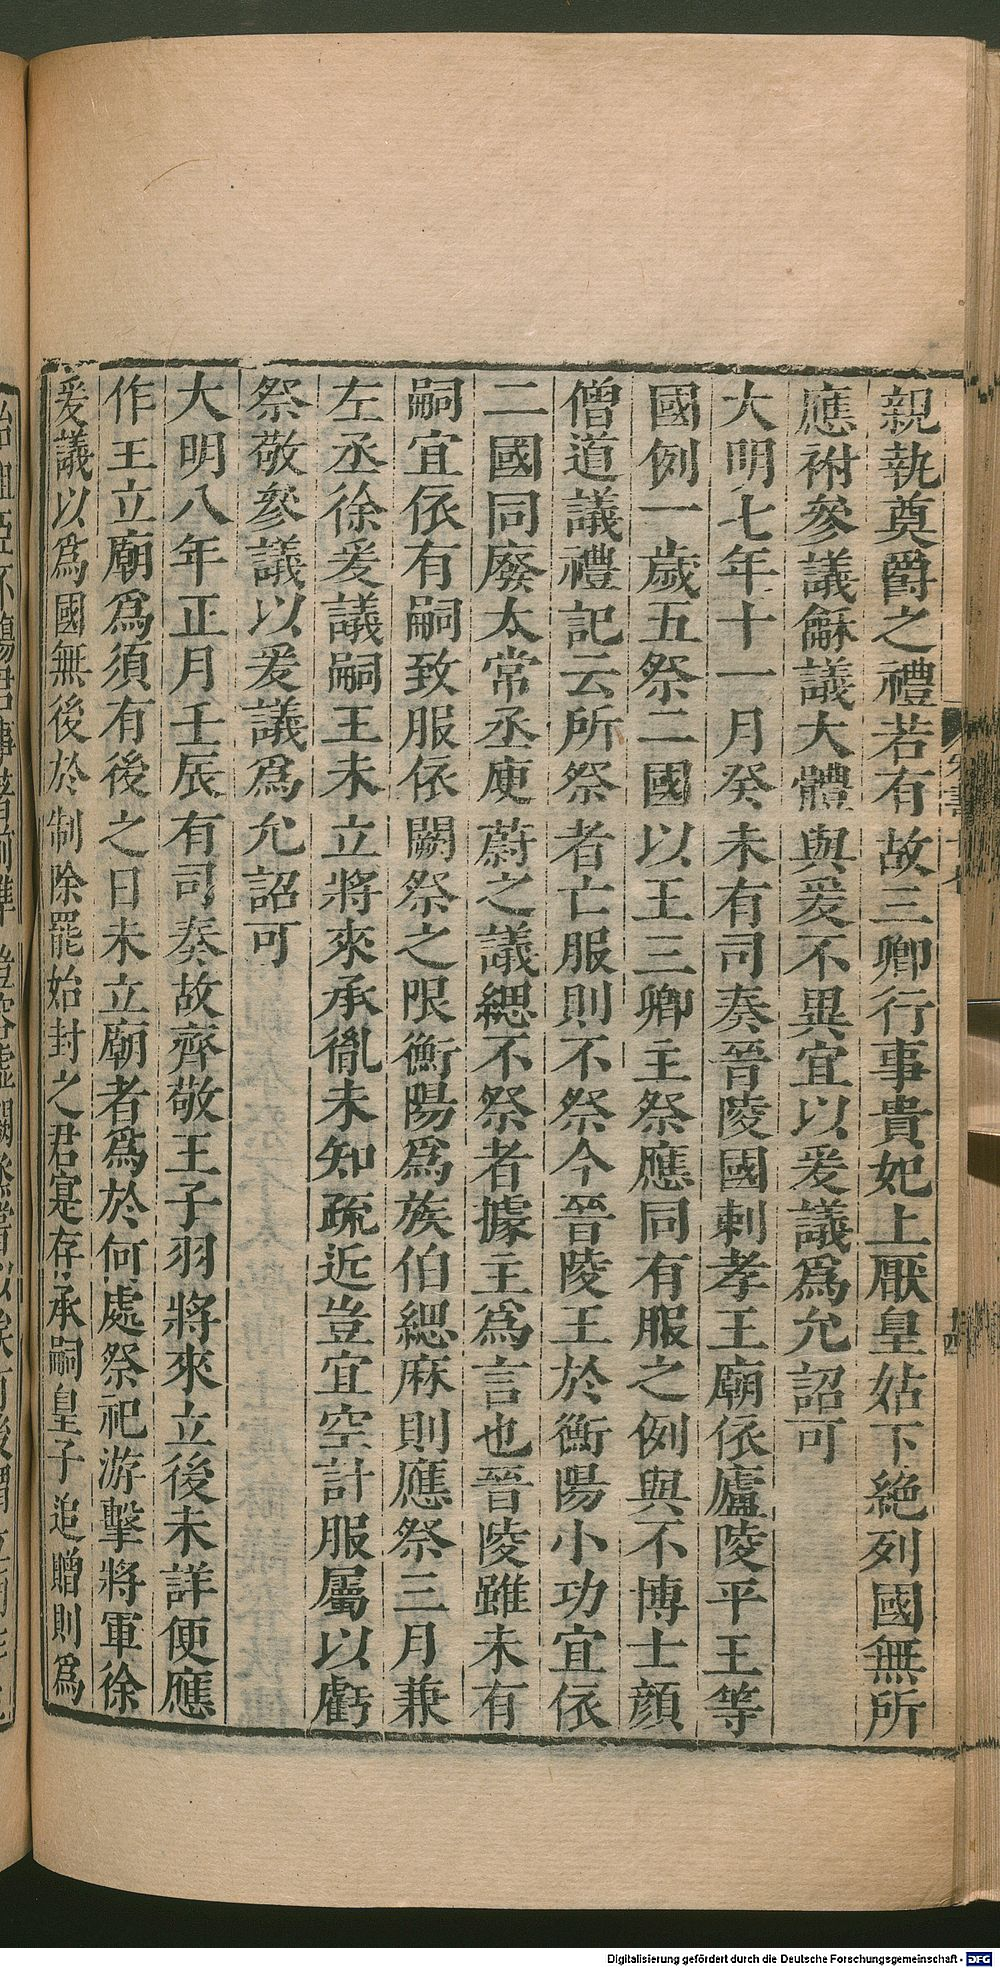 親執奠爵之禮若有故三卿行事貴妃上厭皇姑下絶列國無所
應祔參議龢議大體與爰不異宜以爰議爲允詔可
大明七年十一月癸未有司奏晉陵國剌孝王廟依廬陵平王等
國例一歲五祭二國以王三卿主祭應同有服之例與不博士顔
僧道議禮記云所祭者亡服則不祭今晉陵王於衡陽小功宜依
二國同廢太常丞庾蔚之議緦不祭者據主爲言也晉陵雖未有
嗣宜依有嗣致服依闕祭之限衡陽爲族伯緦麻則應祭三月兼
左丞徐爰議嗣王未立將來承胤未知疏近豈宜空計服屬以虧
祭敬參議以爰議爲允詔可
大明八年正月壬辰有司奏故齊敬王子羽將來立後未詳便應
作王立廟爲須有後之日未立廟者爲於何處祭祀游擊將軍徐
爰議以爲國無後於制除罷始封之君寔存承嗣皇子追贈則爲
十四
Digitalisierung gefördert durch die Deutsche Forschungsgemeinschaft - DFG